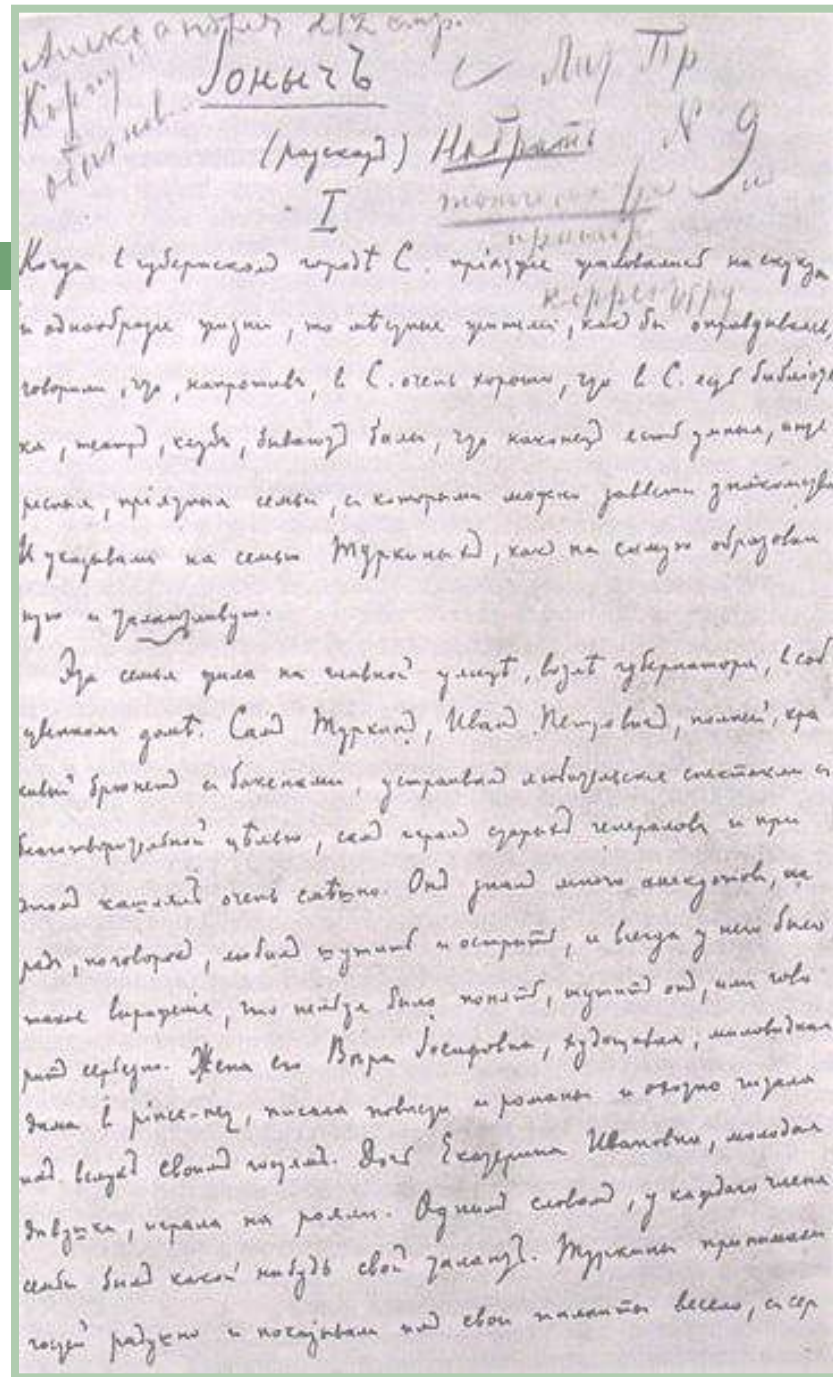 Іонычъ
(разсказъ) Набрать № 9
I
Когда въ губернскомъ городѣ С. пріѣзжіе жаловались на скуку
и однообразіе жизни, то мѣстные жители, какъ бы оправдываясь,
корректуру
говорили, что, напротивъ, въ С. очень хорошо, что въ С. есть библіоте
ка, театръ, клубъ, бываютъ балы, что наконецъ есть умныя, инте
ресныя, пріятныя семьи, съ которыми можно завести знакомства.
И указывали на семью Туркиныхъ, какъ на самую образован
ную и талантливую.
Эта семья жила на главной улицѣ, возлѣ губернатора, въ соб
ственномъ домѣ. Самъ Туркинъ, Иванъ Петровичъ, полный, кра
сивый брюнетъ съ бакенами, устраивалъ любительскіе спектакли съ
благотворительной цѣлью, самъ игралъ старыхъ генераловъ и при
этомъ кашлялъ очень смѣшно. Онъ зналъ много анекдотовъ, ша
радъ, поговорокъ, любилъ шутить и острить, и всегда у него было
такое выраженіе, что нельзя было понять, шутитъ онъ, или гово
ритъ серьезно. Жена его Вѣра Іосифовна, худощавая, миловидная
дама въ pince-nez, писала повѣсти и романы и охотно читала
ихъ вслухъ своимъ гостямъ. Дочь Екатерина Ивановна, молодая
дѣвушка, играла на рояли. Однимъ словомъ, у каждаго члена
семьи былъ какой нибудь свой талантъ. Туркины принимали
гостей радушно и показывали имъ свои таланты весело, съ сер